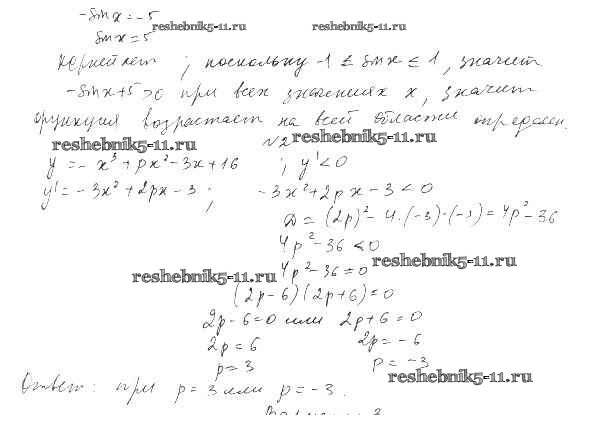 -sin x = -5
reshebnik5-11.ru reshebnik5-11.ru
sin x = 5
корней нет ; поскольку -1 ≤ sin x ≤ 1, значит
-sin x + 5 > 0 при всех значениях x, значит
функция возрастает на всей области определен.
№2 reshebnik5-11.ru
reshebnik5-11.ru
y = -x³ + px² - 3x + 16 ; y' < 0
y' = -3x² + 2px - 3 ; -3x² + 2px - 3 < 0
D = (2p)² - 4·(-3)·(-3) = 4p² - 36
4p² - 36 < 0
reshebnik5-11.ru 4p² - 36 = 0 reshebnik5-11.ru
(2p - 6)(2p + 6) = 0
2p - 6 = 0 или 2p + 6 = 0
2p = 6 2p = -6
p = 3 p = -3
reshebnik5-11.ru
Ответ: при p = 3 или p = -3.